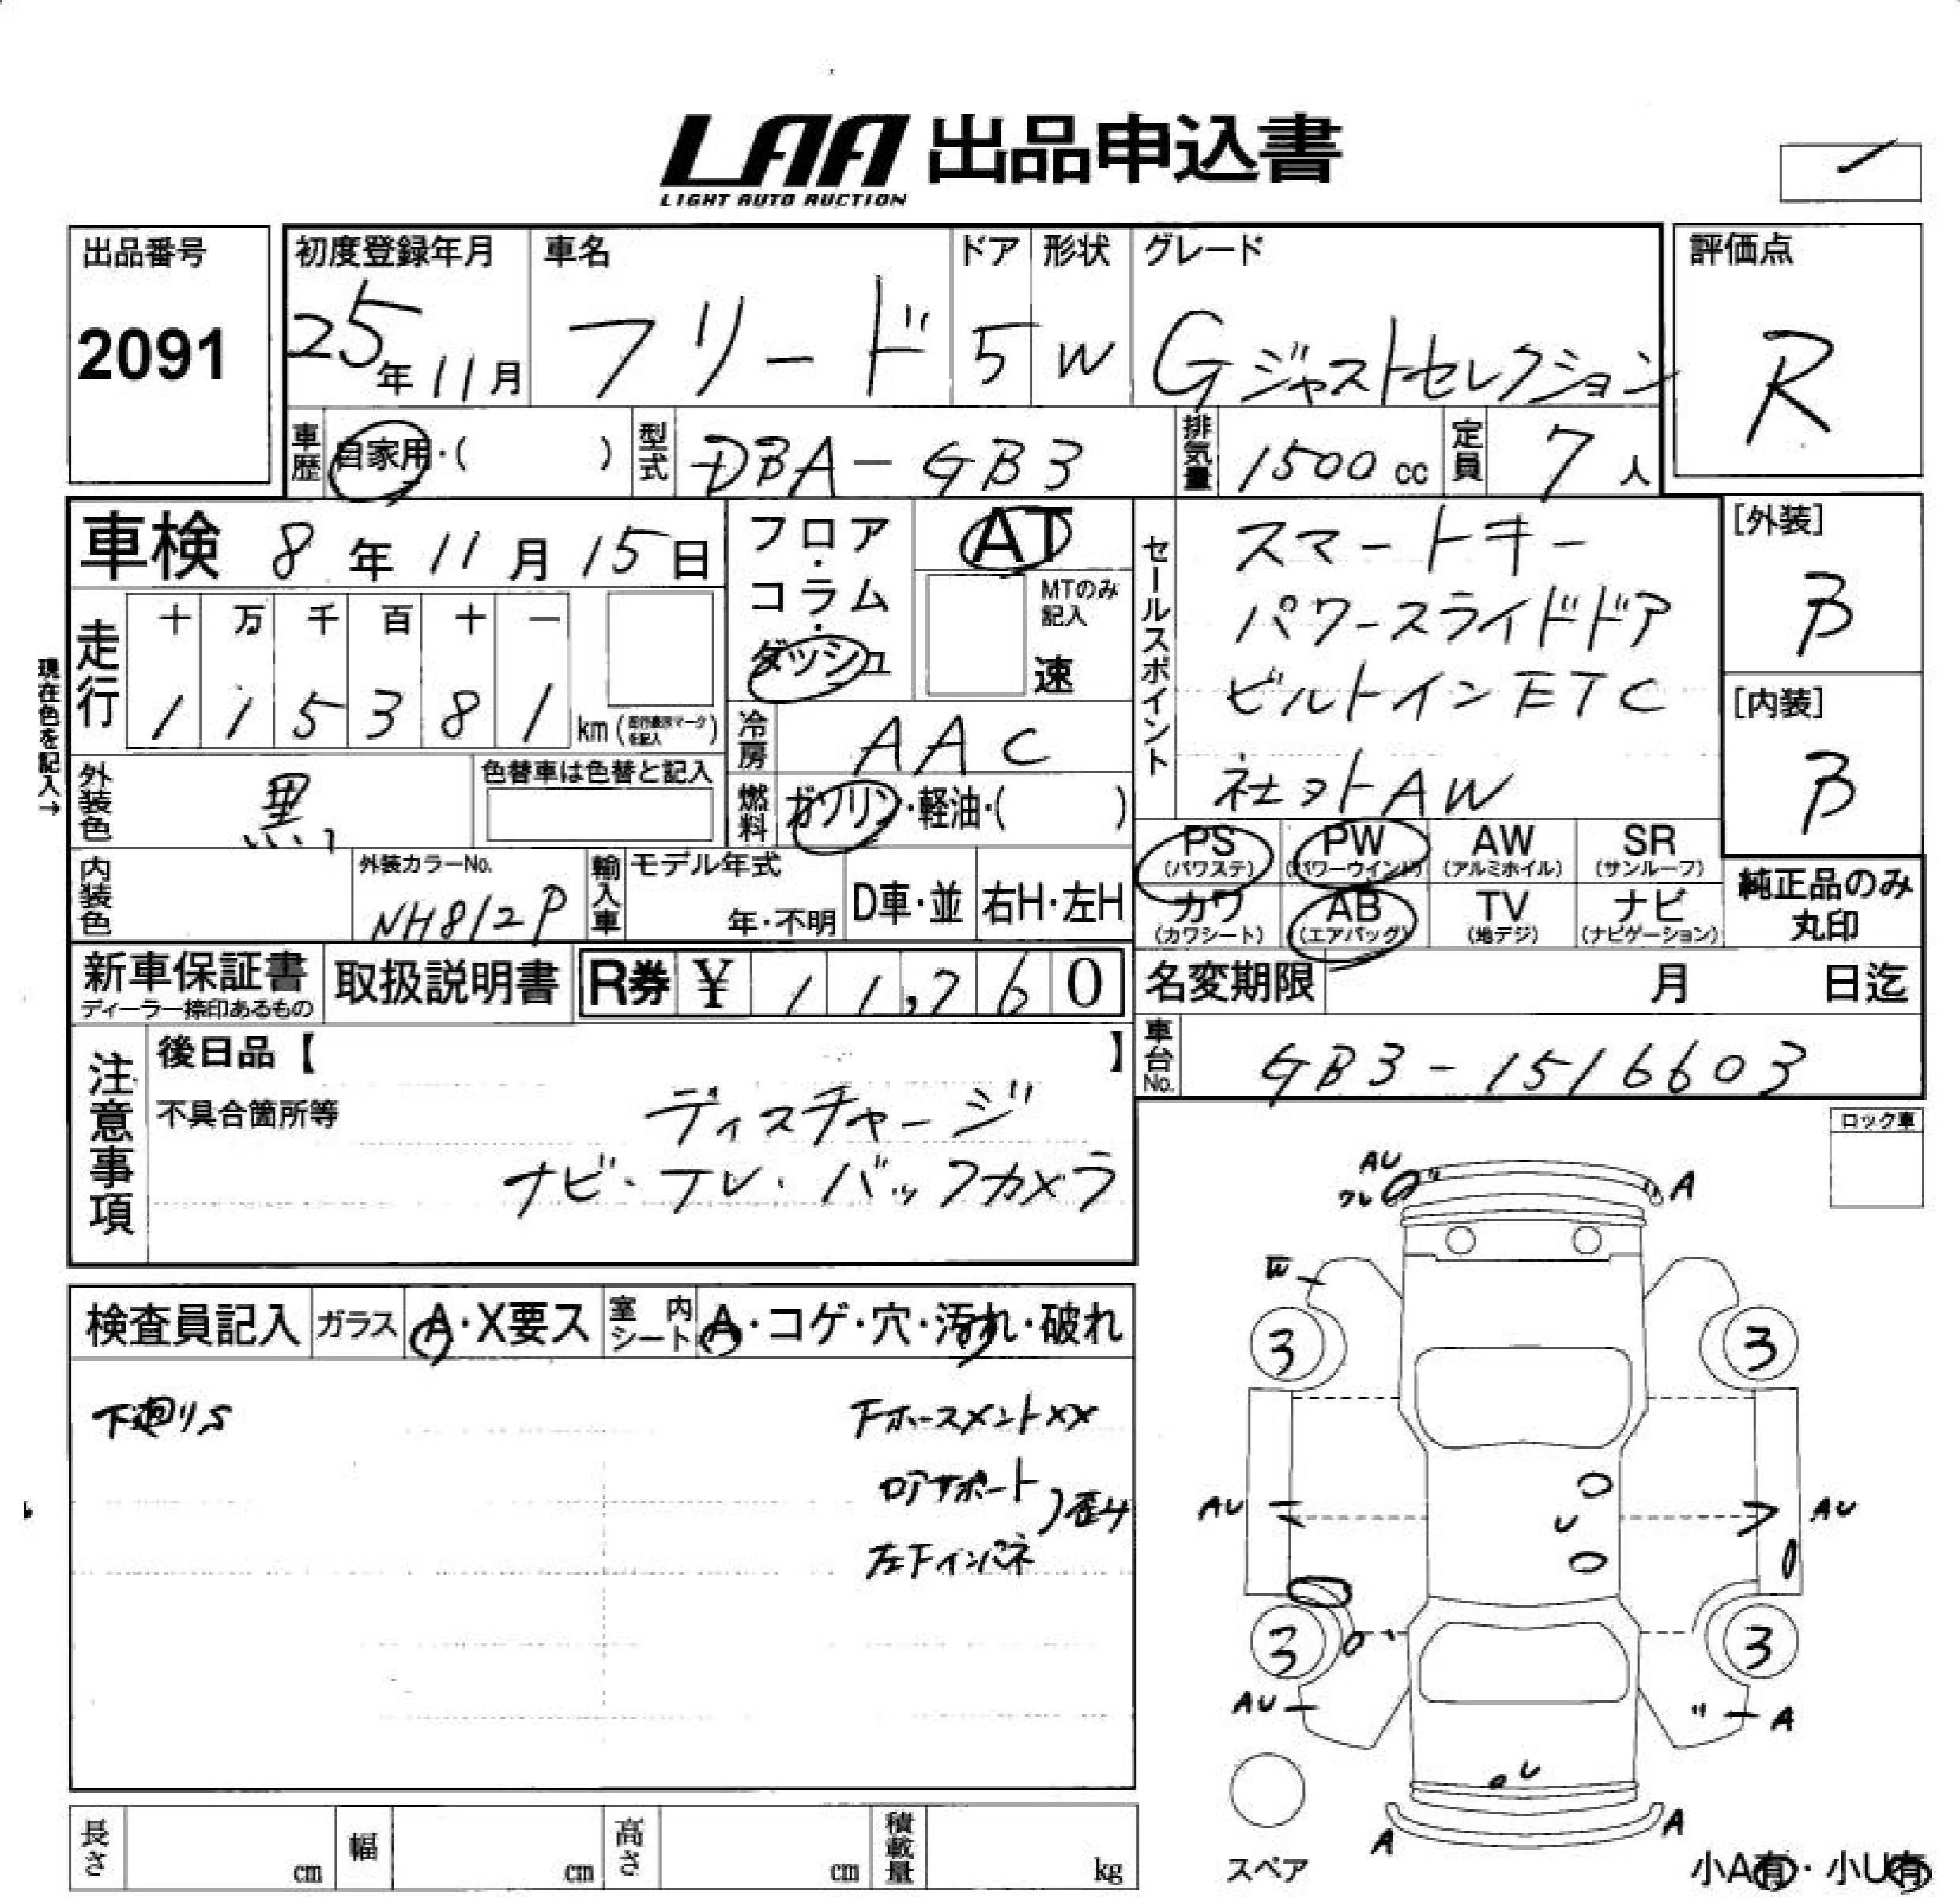 LAA 出品申込書
LIGHT AUTO AUCTION
出品番号
2091
初度登録年月
25年11月
車名
フリード
ドア
5
形状
W
グレード
Gジャストセレクション
評価点
R
車歴
自家用・( )
型式
DBA-GB3
排気量
1500cc
定員
7人
車検 8年11月15日
フロア・コラム・ダッシュ
AT
MTのみ記入
速
セールスポイント
スマートキー
パワースライドドア
ビルトインETC
社ヨトAW
[外装]
B
[内装]
B
現在色を記入→
走行
十 万 千 百 十 一
1 1 5 3 8 1 km
冷房
AAC
外装色
黒
色替車は色替と記入
燃料
ガソリン・軽油・( )
PS (パワステ)
PW (パワーウインド)
AW (アルミホイル)
SR (サンルーフ)
カワ (カワシート)
AB (エアバッグ)
TV (地デジ)
ナビ (ナビゲーション)
純正品のみ丸印
内装色
外装カラーNo.
NH812P
輸入車
モデル年式
年・不明
D車・並
右H・左H
新車保証書
ディーラー捺印あるもの
取扱説明書
R券 ¥ 11,260
名変期限 月 日迄
車台No.
GB3-1516603
注意事項
後日品【 】
不具合箇所等
ディスチャージ
ナビ・テレ・バックカメラ
ロック車
検査員記入
ガラス
A・X要ス
室内シート
A・コゲ・穴・汚れ・破れ
下廻りS
下ホースメントXX
ロアサポート
左下インパネ
歪み
AU
ワレ
A
W
3
3
AU
AU
3
3
AU
A
U
U
A
A
スペア
小A有・小U有
長さ cm
幅 cm
高さ cm
積載量 kg